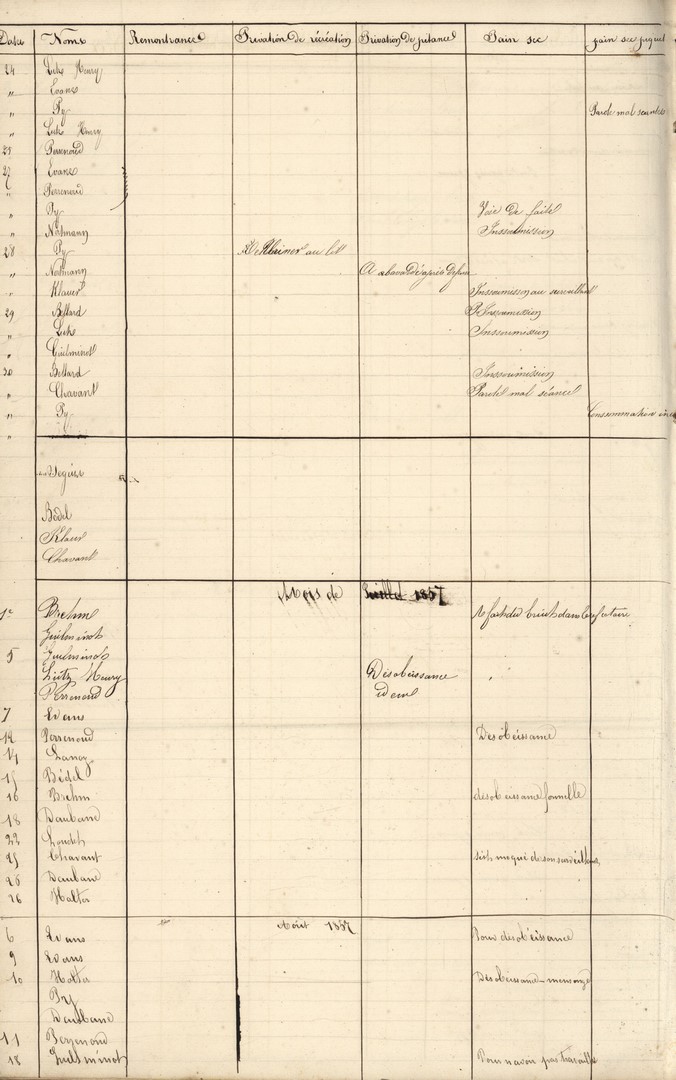 Date Noms Remontrance Privation de récréation Privation de pitance Pain sec pain sec piquet
24 Lutz Henry
" Evans
" Py Parole mal séante
" Lutz Henry
25 Perrenoud
27 Evans
" Perrenoud
" Py Voie de faite
" Normann Inssoumission
28 Py au lit
" Normann A après
" Klaus Inssoumission au surveillant
29 Bellard Inssoumission
" Lutz Inssoumission
" Guilminot
30 Bellard Inssoumission
" Chavant Parole mal séance
" Py Consommation
"
Bédel
Klaus
Chavant
Mois de Juillet 1857
1er Brehm A fait du bruit dans le réfectoire
Guilminot
5 Guilminot
Lutz Henry Désobeissance
Perrenoud idem
7 Evans
12 Perrenoud Desobéissance
14 Lancy
15 Bédel
16 Brehm désobeissance formelle
18 Daubane
22 Loudet
25 Chavant s'est moqué de son surveillant
26 Daubane
26 Halter
Août 1857
6 Evans Pour desobéissance
9 Evans
10 Halter Desobeissance - mensonge
Py
Daubane
11 Perrenoud
18 Guilminot Pour n'avoir pas travaillé